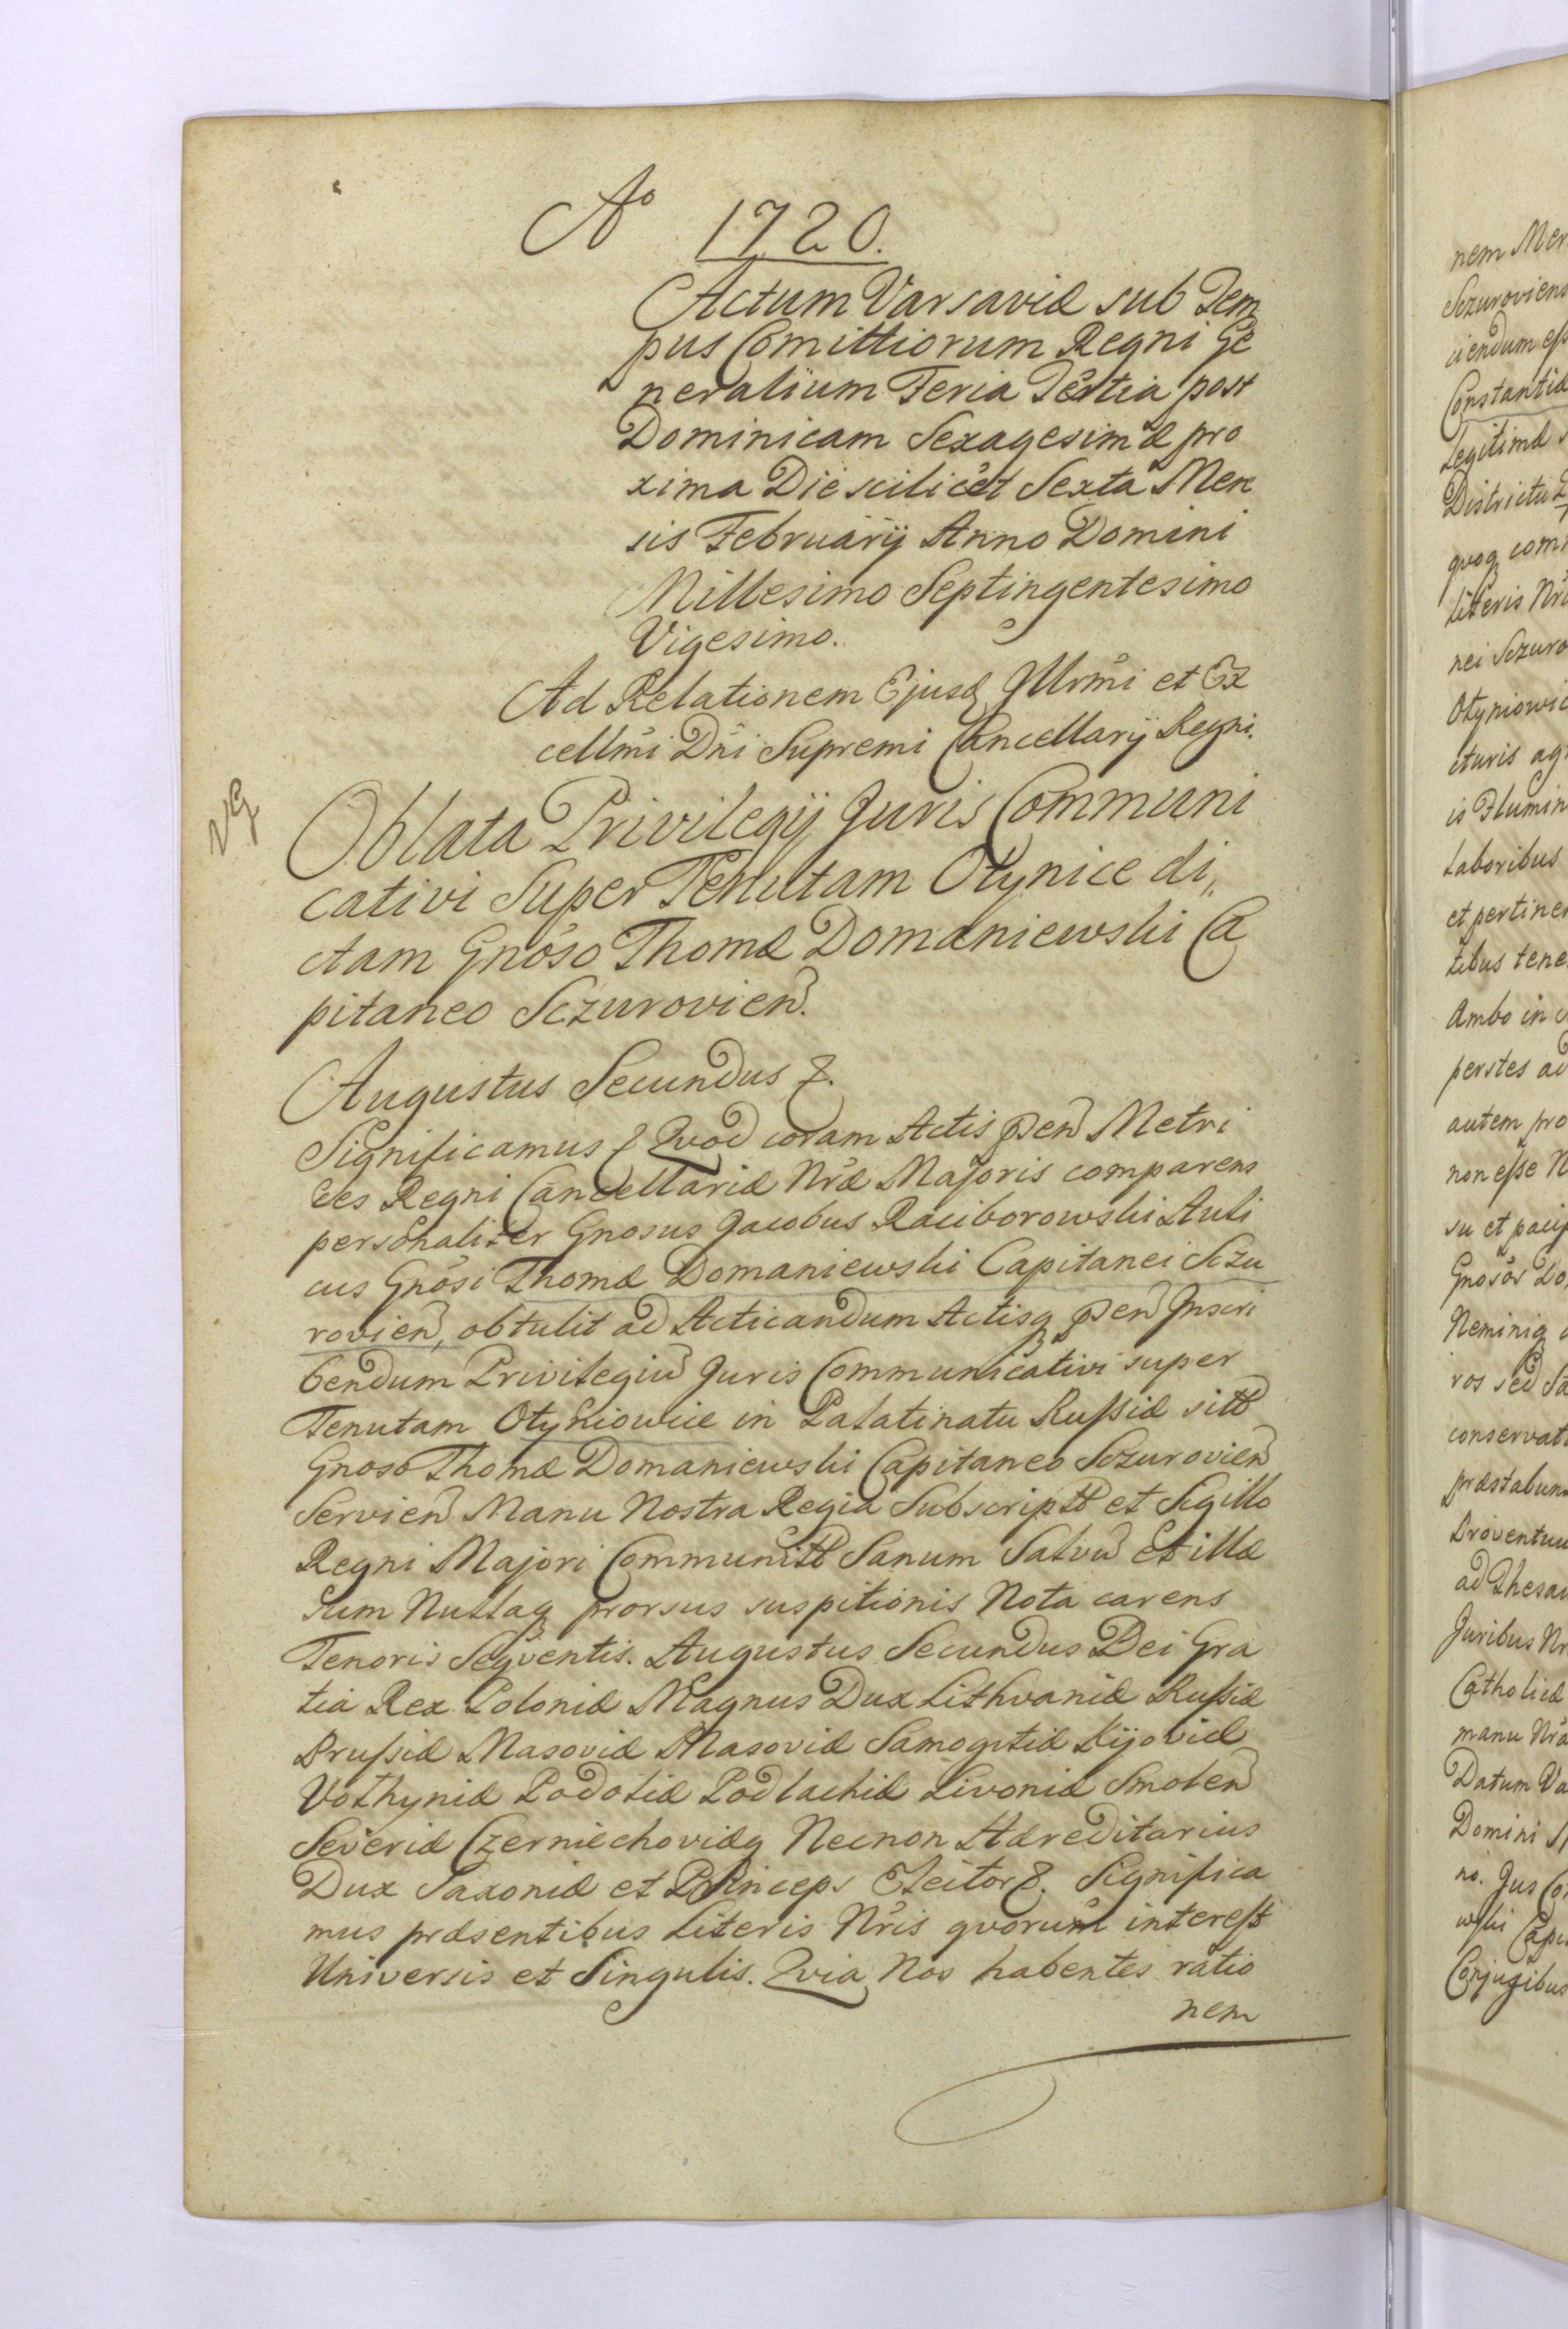 Aº 1720.
Actum Varsaviæ sub Tem
pus Comittiorum Regni Ge
neralium Feria Tertia post
Dominicam Sexagesimæ pro
xima Die scilicet Sexta Men
sis Februarij Anno Domini
Millesimo Septingentesimo
Vigesimo.
Ad Relationem Ejusq Illrmi et Ex
cellmi Dni Supremi Cancellarij Regni.
Oblata Privilegij Juris Communi
cativi Super Tenutam Otynice di„
ctam Gnoso Thomæ Domaniewski Ca
pitaneo Sczurovien.
Augustus Secundus &.
Significamus & Qvod coram Actis pen Metri
ces Regni Cancellariæ Nræ Majoris comparens
personaliter Gnosus Jacobus Raciborowski Auli
cus Gnosi Thomæ Domaniewski Capitanei Sczu
rovien, obtulit ad Acticandum Actisq pen Inscri
bendum Privilegiu Juris Communicativi super
Tenutam Otyniowice in Palatinatu Rußiæ sitt
Gnoso Thomæ Domaniewski Capitaneo Sczurovien
Servien Manu Nostra Regia Subscriptt et Sigillo
Regni Majori Communitt Sanum Salvu et illæ
sum Nullaq prorsus suspitionis Nota carens
Tenoris Seqventis. Augustus Secundus Dei Gra
tia Rex Poloniæ Magnus Dux Lithvaniæ Rußiæ
Prußiæ Masoviæ Masoviæ Samogitiæ Kijoviæ
Volhyniæ Podoliæ Podlachiæ Livoniæ Smolen
Severiæ Czerniechoviæq Necnon Hæreditarius
Dux Saxoniæ et Princeps Elector &. Significa
mus præsentibus Literis Nris qvorum interest
Universis et Singulis. Qvia Nos habentes ratio
nem
nem Mer
Sczuroviens
ciendum eß
Constantiæ
Legitimæ
Districtu
qvoq com
Literis Nr
nei Sczuro
Otyniowic
cturis ag
is Flumin
Laboribus
et pertinen
tibus tene
Ambo in
perstes ad
autem pro
non eße N
su et pacif
Gnosor Do
Neminiq
ros sed Sa
conservat
præstabun
Proventuu
ad Thesau
Juribus Nr
Catholicæ
manu Nra
Datum Va
Domini
no. Jus Co
wski Capi
Conjugibus